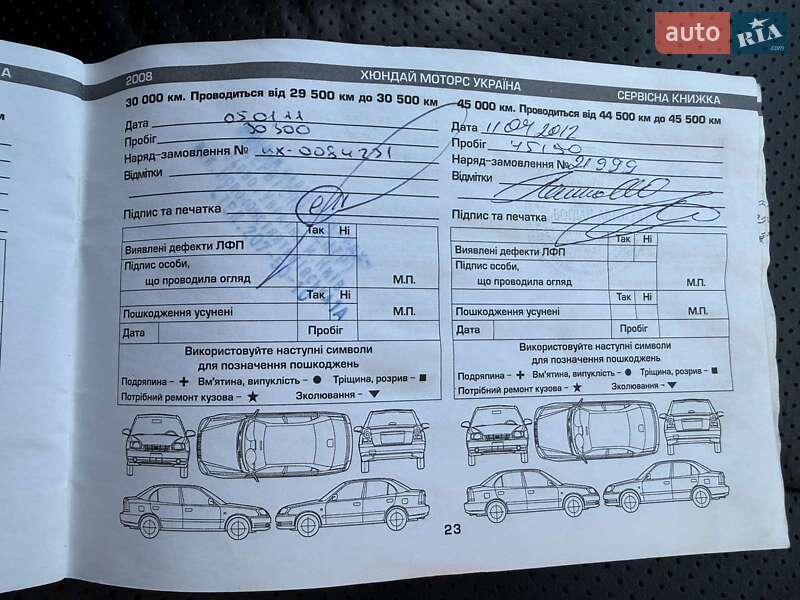 auto RIA .com
А
2008
ХЮНДАЙ МОТОРС УКРАЇНА
СЕРВІСНА КНИЖКА
30 000 км. Проводиться від 29 500 км до 30 500 км
Дата 05.01.11
Пробіг 30 500
Наряд-замовлення №
Відмітки
Підпис та печатка
Так Ні
Виявлені дефекти ЛФП
Підпис особи,
що проводила огляд
М.П.
Так Ні
Пошкодження усунені
М.П.
Дата
Пробіг
Використовуйте наступні символи
для позначення пошкоджень
Подряпина –
Вм'ятина, випуклість –
Тріщина, розрив –
Потрібний ремонт кузова –
Зколювання –
45 000 км. Проводиться від 44 500 км до 45 500 км
Дата 11 04 2012
Пробіг
Наряд-замовлення № 21999
Відмітки
Підпис та печатка
Так Ні
Виявлені дефекти ЛФП
Підпис особи,
що проводила огляд
М.П.
Так Ні
Пошкодження усунені
М.П.
Дата
Пробіг
Використовуйте наступні символи
для позначення пошкоджень
Подряпина –
Вм'ятина, випуклість –
Тріщина, розрив –
Потрібний ремонт кузова –
Зколювання –
23